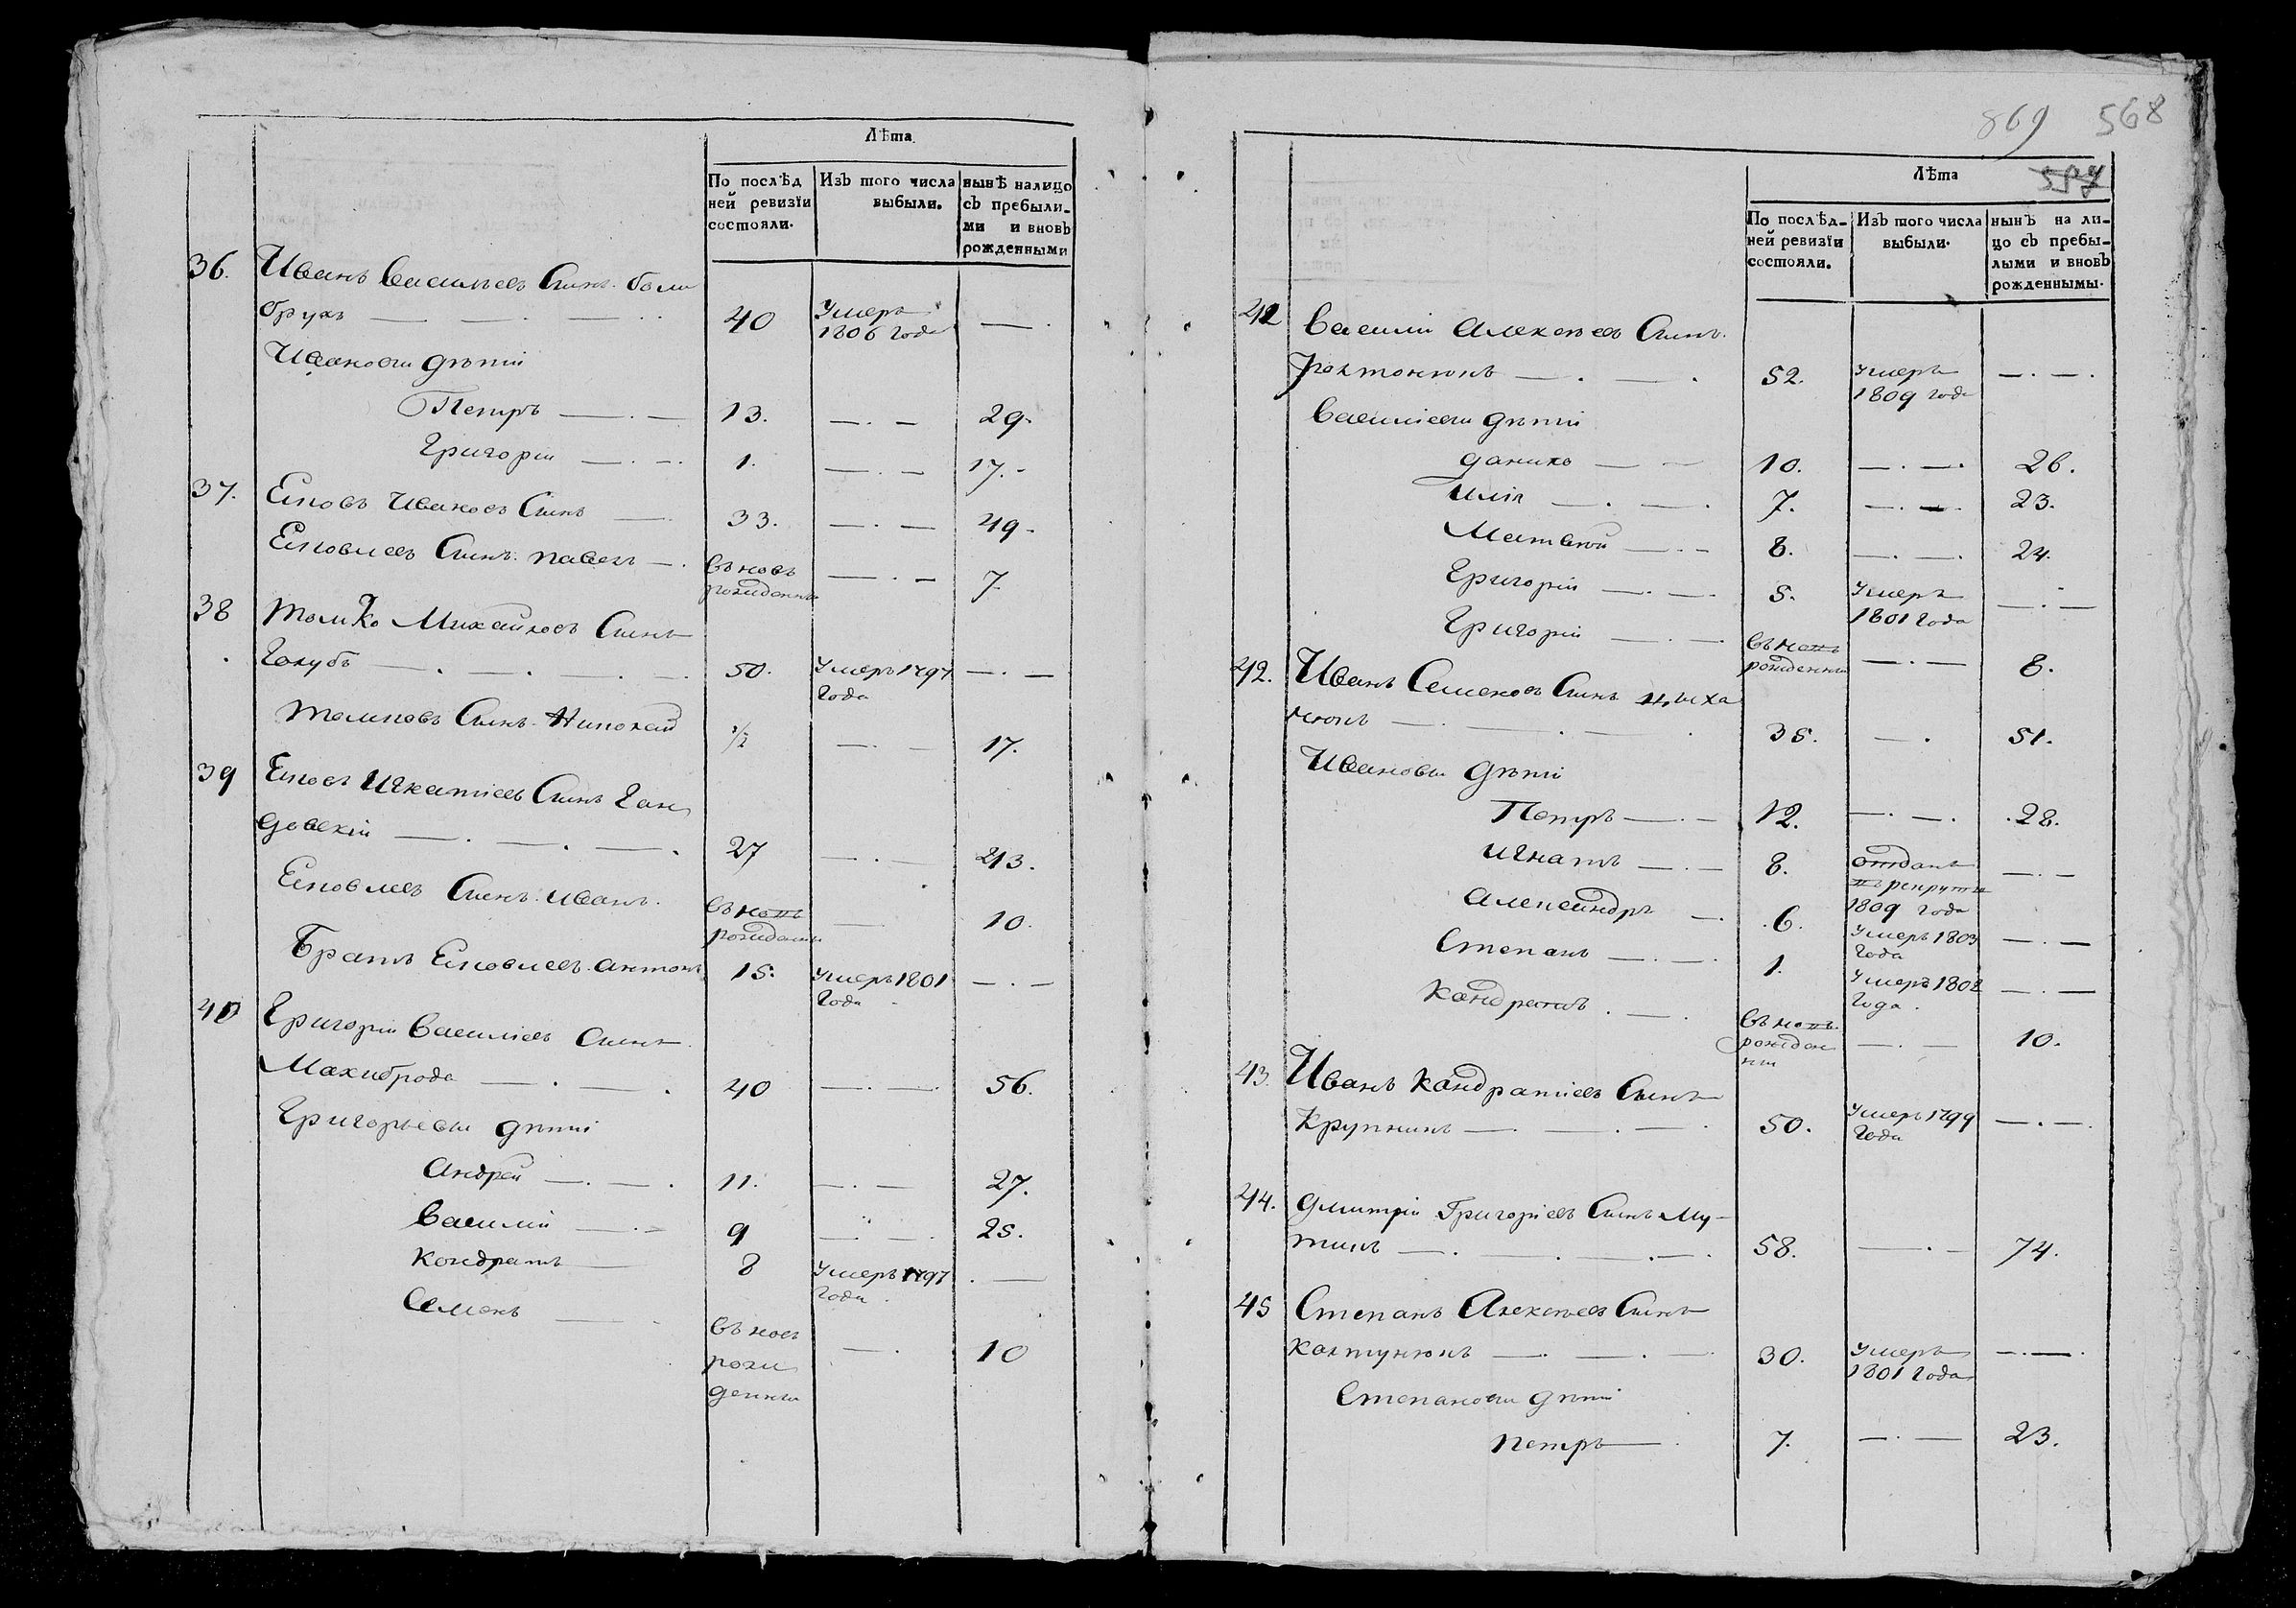 Лѣта
По послѣд
ней ревизїи
состояли.
Изъ того числа
выбыли.
нынѣ налицо
съ пребыли-
ми и вновь
рожденными
36. Иванъ Васильевъ Синъ боли
брухъ 40 Умеръ
1806 Года
Ивановы дѣти
Петръ 13. 29.
Григорїй 1. 17.
37. Яковъ Ивановъ Синъ 33. 49.
Яковлевъ Синъ павелъ въновь
рожденны 7.
38 Михайловъ Синъ
Голубъ 50. Умеръ 1797
Года
Синъ Николай 1/2 17.
39 Яковъ Игнатїевъ Синъ Ган
довскїй 27 43.
Яковлевъ Синъ иванъ въновъ
рожденны 10.
Братъ Яковлевъ антонъ 15. Умеръ 1801
Года
40 Григорїй Василїевъ Синъ
Махиброда 40 56.
Григорьевы дѣти
андрей 11. 27.
Василїй 9 25.
кондратъ 8 Умеръ 1797
Года
Семенъ въновъ
рож
денны 10
869 568
Лѣта
По послѣд-
ней ревизїи
состояли.
Изъ того числа
выбыли.
нынѣ на ли-
цо съ пребы-
лыми и вновь
рожденнымы.
41 Василїй алексѣевъ Синъ
52. умеръ
1809 года
Василїевы дѣти
данило 10. 26.
илїя 7. 23.
Матвѣй 8. 24.
Григорїй 5. Умеръ
1801 Года
Григорїй въновъ
рожденны 8.
42. Иванъ Семеновъ Синъ цыха
нюкъ 35. 51.
Ивановы дѣти
Петръ 12. 28.
игнатъ 8. отданъ
въ рекруты
1809 года
александръ 6. Умеръ 1803
Года
Степанъ 1. Умеръ 1802
Года
Кандратъ въновъ
рожден
ны 10.
43. Иванъ Кандратїевъ Синъ
Крупникъ 50. Умеръ 1799
Года
44. дмитрїй Григорїевъ Синъ Му-
58. 74.
45 Степанъ Алексѣевъ Синъ
Колтунюкъ 30. Умеръ
1801 Года
Степановы дѣти
петръ 7. 23.